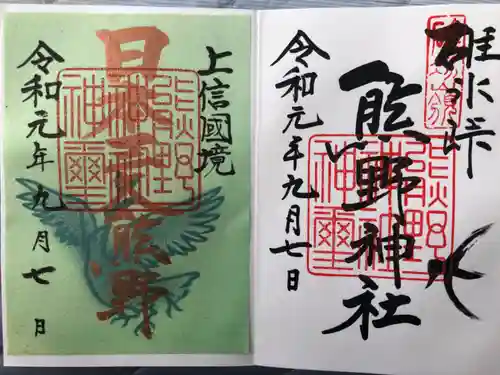 碓氷峠
熊野神社
令和元年九月七日
熊野
神社
神璽
上信國境
日本三大熊野
令和元年九月七日
熊野
神社
神璽